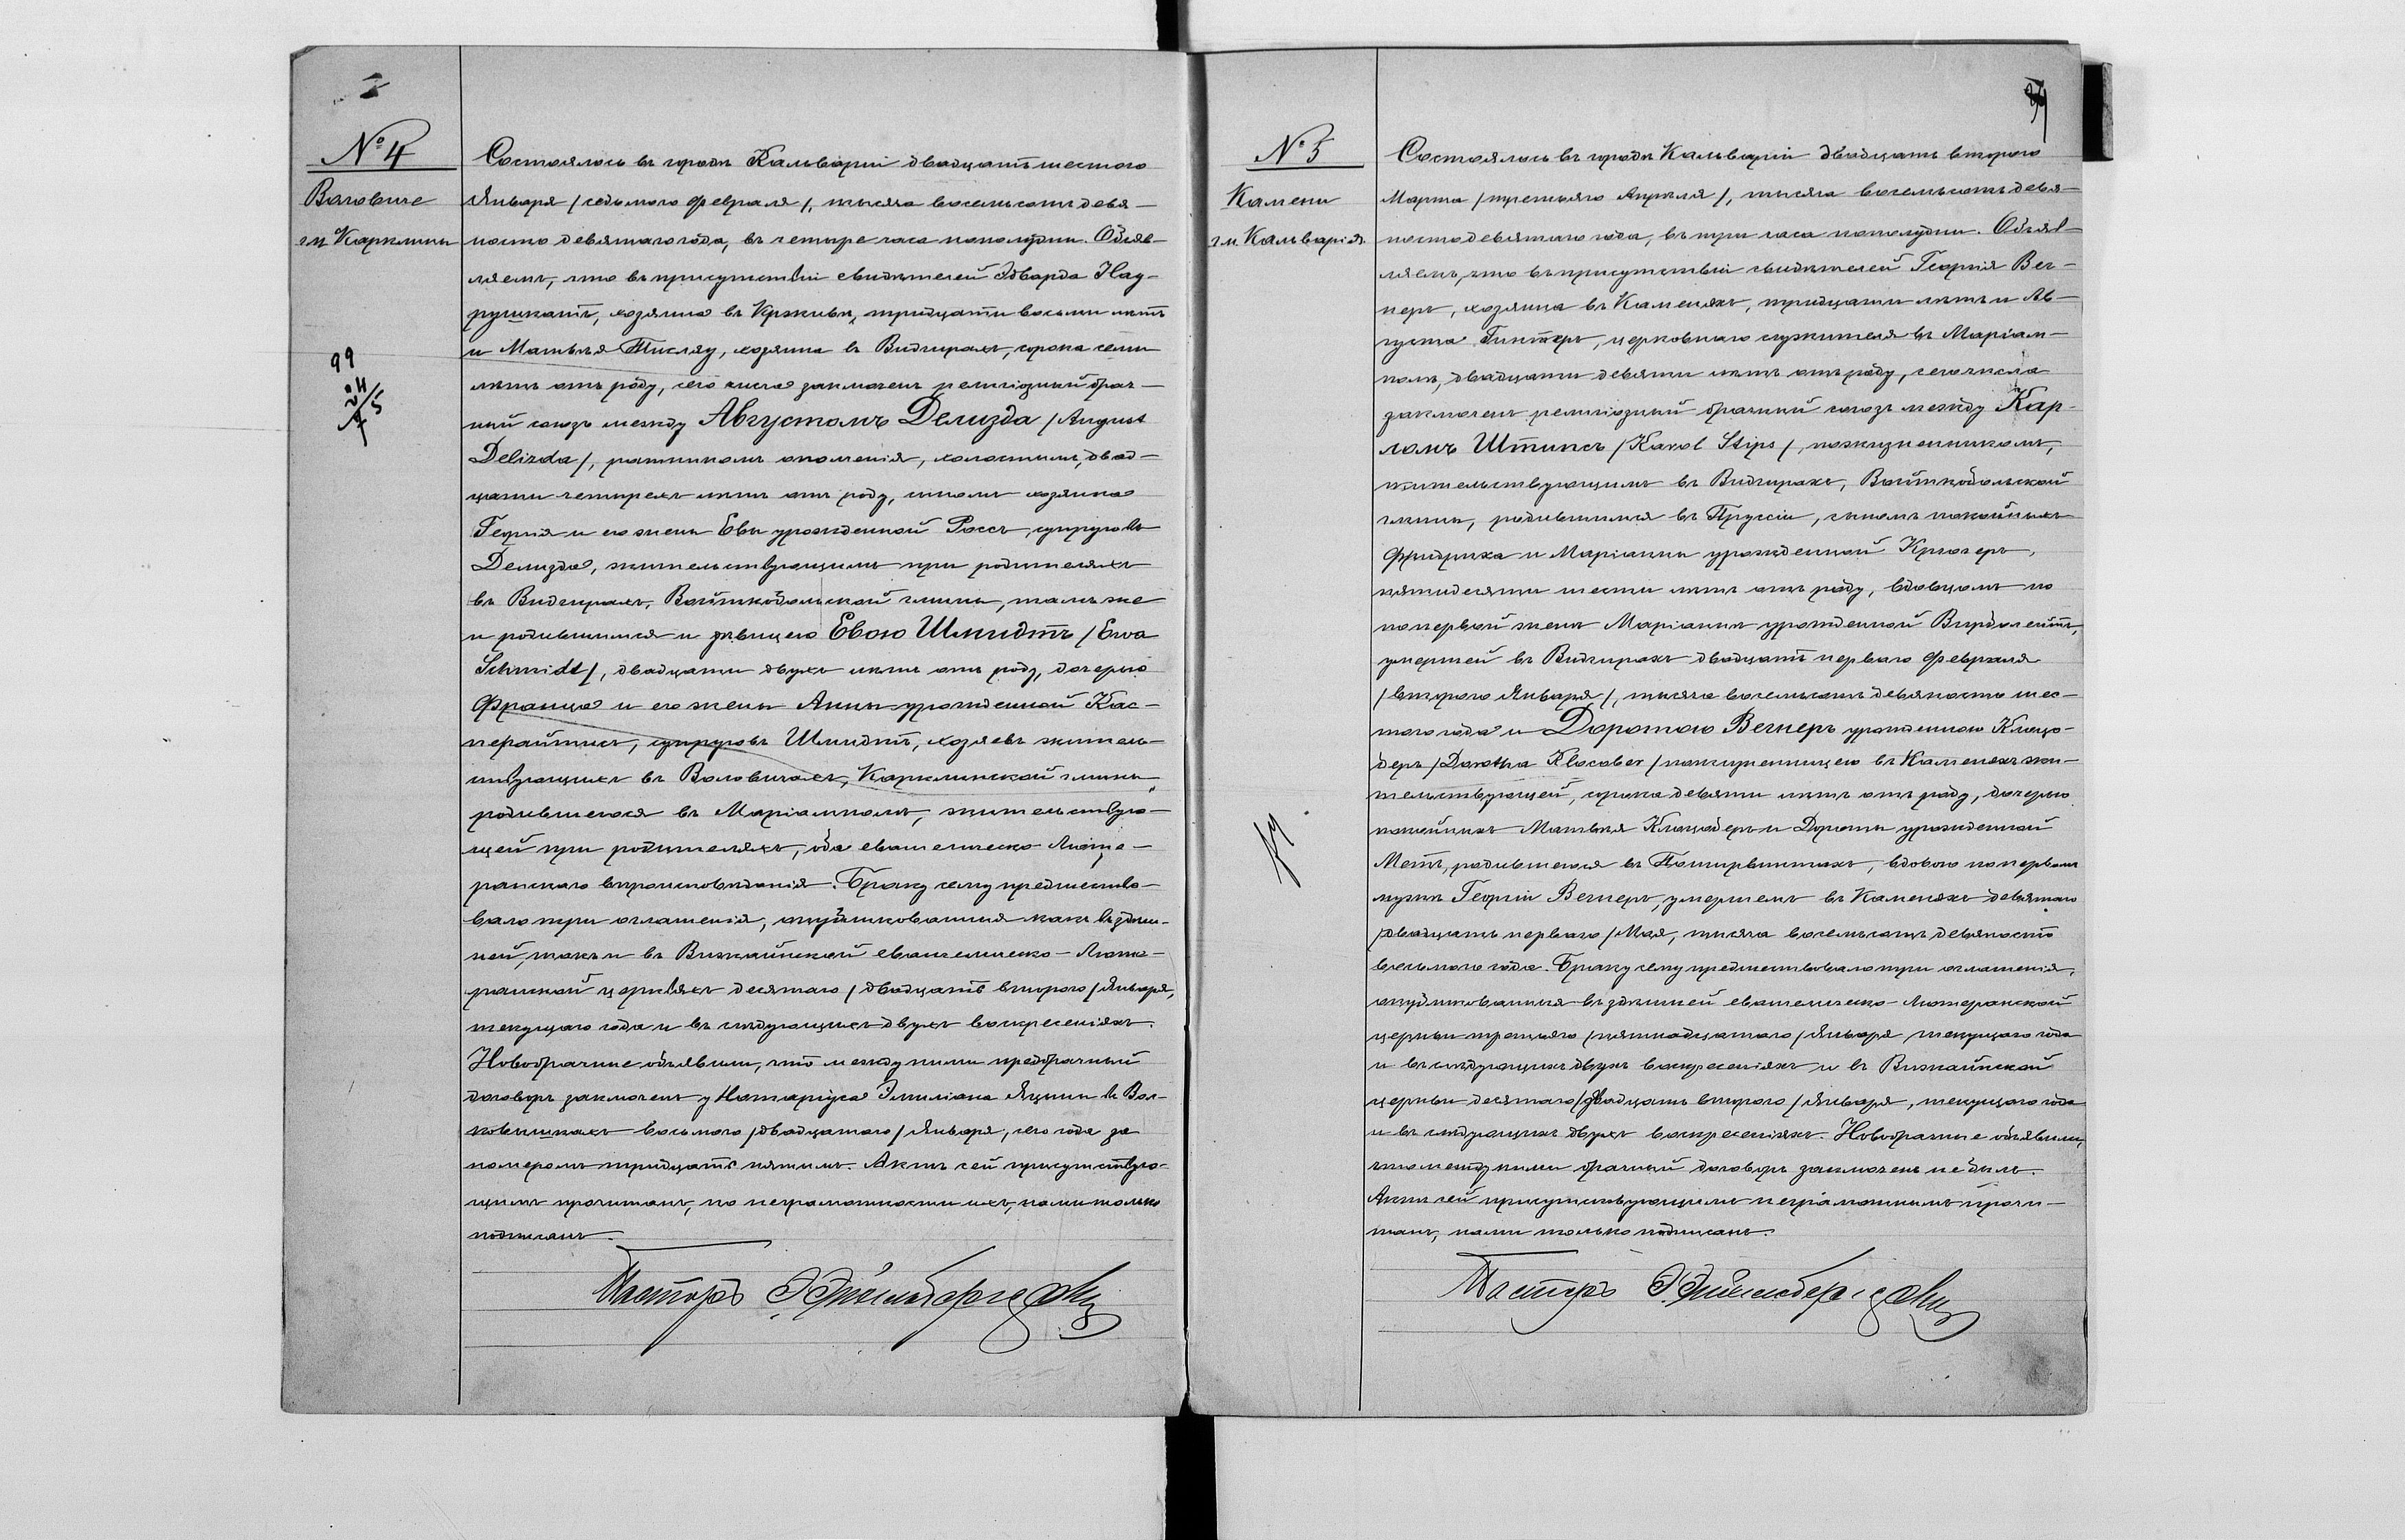 № 4
Воловиче
гм. Карклины
99
24/5
Состоялось въ городѣ Кальваріи двадцать шестого
Января /седьмого Февраля/, тысяча восемьсотъ девя-
носто девятаго года, въ четыре часа пополудни. Объяв-
ляемъ, что въ присутствіи свидѣтелей Эдварда Нау-
рушкатъ, хозяина въ , тридцати восьми лѣтъ
и Матвѣя Тиклау, хозяина въ Видгирахъ, сорока семи
лѣтъ отъ роду, сего числа заключенъ религіозный брач-
ный союзъ между Августомъ Делизда /August
Delizda/, ратникомъ ополченія, холостымъ, двад-
цати четырехъ лѣтъ отъ роду, сыномъ хозяина
Георгія и его жены Евы урожденной Россъ, супруговъ
Делизда, жительствующимъ при родителяхъ
въ Видгирахъ, Войткобольской гмины, тамъ же
и родившимся и дѣвицею Евою Шмидтъ /Ewa
Schmidt/, двадцати двухъ лѣтъ отъ роду, дочерью
Франца и его жены Анны урожденной Кас-
перайтисъ, супруговъ Шмидтъ, хозяевъ житель-
ствующихъ въ Воловичахъ, Карклинской гмины,
родившеюся въ Маріамполѣ, жительствую-
щей при родителяхъ, оба евангелическо-Люте-
ранскаго вѣроисповѣданія. Браку сему предшество-
вало три оглашенія, опубликованныя какъ въ здѣш-
ней, такъ и въ Вижайнской евангелическо-Люте-
ранской церквяхъ десятаго /двадцать второго/ Января,
текущаго года и въ слѣдующихъ двухъ воскресеніяхъ.
Новобрачные объявили, что между ними предбрачный
договоръ заключенъ у Нотаріуса Эмиліана Яцыны въ Вол-
ковышкахъ восьмого /двадцатаго/ Января, сего года за
номеромъ тридцать пятымъ. Актъ сей присутствую-
щимъ прочитанъ, по неграмотности ихъ, нами только
подписанъ.
Пасторъ
№ 5
Камени
гм. Кальварія
Состоялось въ городѣ Кальваріи двадцать второго
Марта /третьяго Апрѣля/, тысяча восемьсотъ девя-
носто девятаго года, въ три часа пополудни. Объяв-
ляемъ, что въ присутствіи свидѣтелей Георгія Вег-
неръ, хозяина въ Каменяхъ, тридцати лѣтъ и Ав-
густа Гинтеръ, церковнаго служителя въ Маріам-
полѣ, двадцати девяти лѣтъ отъ роду, сего числа
заключенъ религіозный брачный союзъ между Кар-
ломъ Штипсъ /Karol Stips/, пожизненникомъ,
жительствующимъ въ Видгирахъ, Войткобольской
гмины, родившимся въ Пруссіи, сыномъ покойныхъ
Фридриха и Маріанны урожденной Крюгеръ,
пятидесяти шести лѣтъ отъ роду, вдовцомъ по
по первой женѣ Маріаннѣ урожденной ,
умершей въ Видгирахъ двадцать перваго Февраля
/второго Января/, тысяча восемьсотъ девяносто шес-
того года и Доротою Вегнеръ урожденною Клоцо-
беръ /Dorothea Klocober/ пожизненницею въ Каменяхъ жи-
тельствующей, сорока девяти лѣтъ отъ роду, дочерью
покойныхъ Матвѣя Клоцоберъ и Дороты урожденной
Метъ, родившеюся въ , вдовою по первомъ
мужѣ Георгіи Вегнеръ, умершемъ въ Каменяхъ девятаго
/двадцать перваго/ Мая, тысяча восемьсотъ девяносто
восьмого года. Браку сему предшествовало три оглашенія,
опубликованныя въ здѣшней евангелическо-Лютеранской
церкви третьяго /пятнадцатаго/ Января текущаго года
и въ слѣдующихъ двухъ воскресеніяхъ и въ Вижайнской
церкви десятаго /двадцать второго/ Января, текущаго года
и въ слѣдующихъ двухъ воскресеніяхъ. Новобрачные объявили,
что между ними брачный договоръ заключенъ не былъ.
Актъ сей присутствующимъ неграмотнымъ прочи-
танъ, нами только подписанъ.
Пасторъ